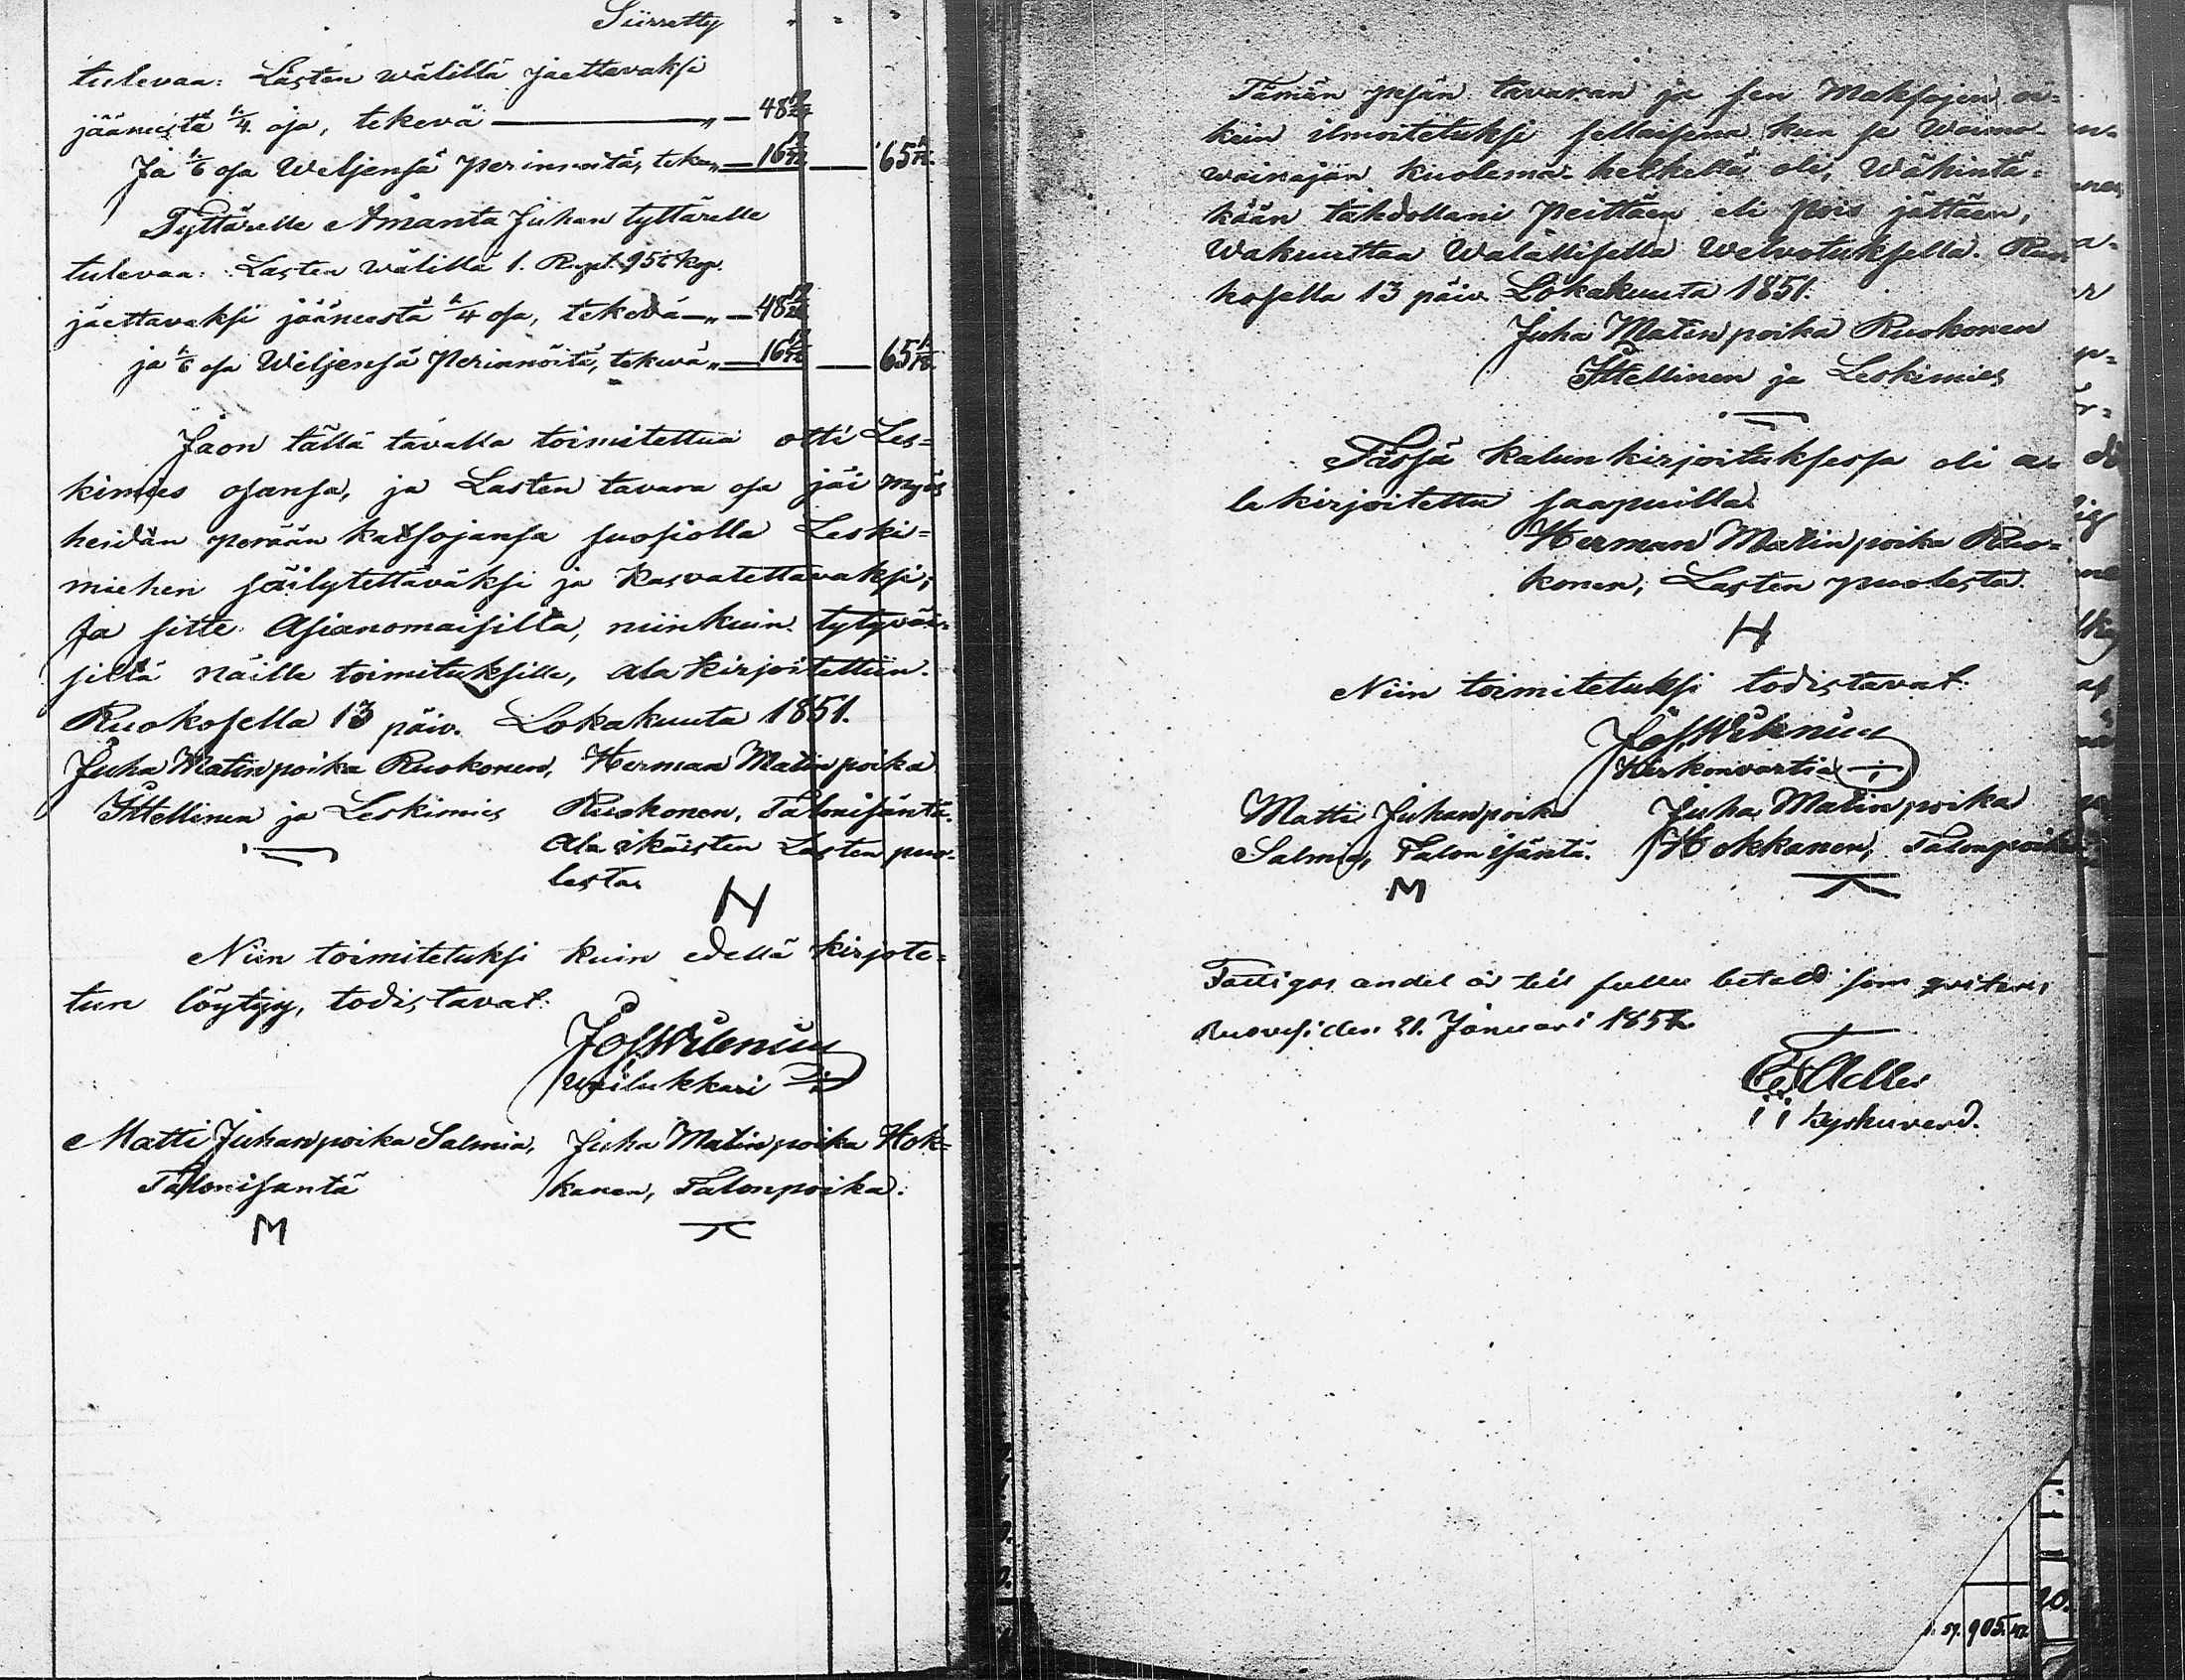 Siirretty
tulevaa: Lasten wälillä jaettavaksi
jäänustä 1/4 osa, tekevä — „ — 48
Ja 1/6 osa Weljensä perinnöitä, teke „ — 16 — 65
Tyttärelle Amanta Juhan tyttärelle
tulevaa: Lasten wälillä 1. Rupl. 95 kop.
jaettavaksi jäänestä 1/4 osa, tekevä — „ — 48
ja 1/6 osa Weljensä Perinnöitä, tekevä „ — 16 — 65
Jaon tällä tavalla toimitettua otti Les=
kimies osansa, ja Lasten tavara osa jäi myös
heidän perään katsojansa suosiolla Leski=
miehen säilytettäväksi ja Kasvatettavaksi;
Ja sitte Asianomaisilta, niinkuin tytyväi=
siltä näille toimituksille, ala kirjoitettiin.
Ruokosella 13 päiv. Lokakuuta 1851.
Juha Matinpoika Ruokonen, Herman Matinpoika
Ittellinen ja Leskimies Ruokonen, Talonisäntä.
Ala ikäisten Lasten puo=
lesta.
H
Niin toimitetuksi kuin edellä kirjote=
tun löytyy, todistavat:
Jos Wilenius
Matti Juhanpoika Salmia, Juha Matinpoika Hok=
Talonisäntä kanen, Talonpoika.
M
Tämän pesän tavaran ja sen Maksojen oi=
kein ilmoitetuksi sellaisena kun se Waimo=
wainajan kuolema-hetkellä oli, Wähintä=
kään tahdollani peittäen eli pois jättäen,
Wakuuttaa Walallisella Welvotuksella. Ruo
kosella 13 päiv. Lokakuuta 1851.
Juha Matinpoika Ruokonen
Ittellinen ja Leskimies
Tässä kalunkirjoituksessa oli a=
lakirjoitettu saapuilla
Herman Matinpoika Ruo=
konen, Lasten puolesta.
H
Niin toimitetuksi todistavat:
Jos Wilenius
Kirkonvartia
Matti Juhanpoika Juha Matinpoika
Salmia, Talonisäntä. Hokkanen, Talonpoika
M
Fattigas andel är till fullo betald som qviteras
Ruovesi den 21. Januari 1852
57. 905.
20.